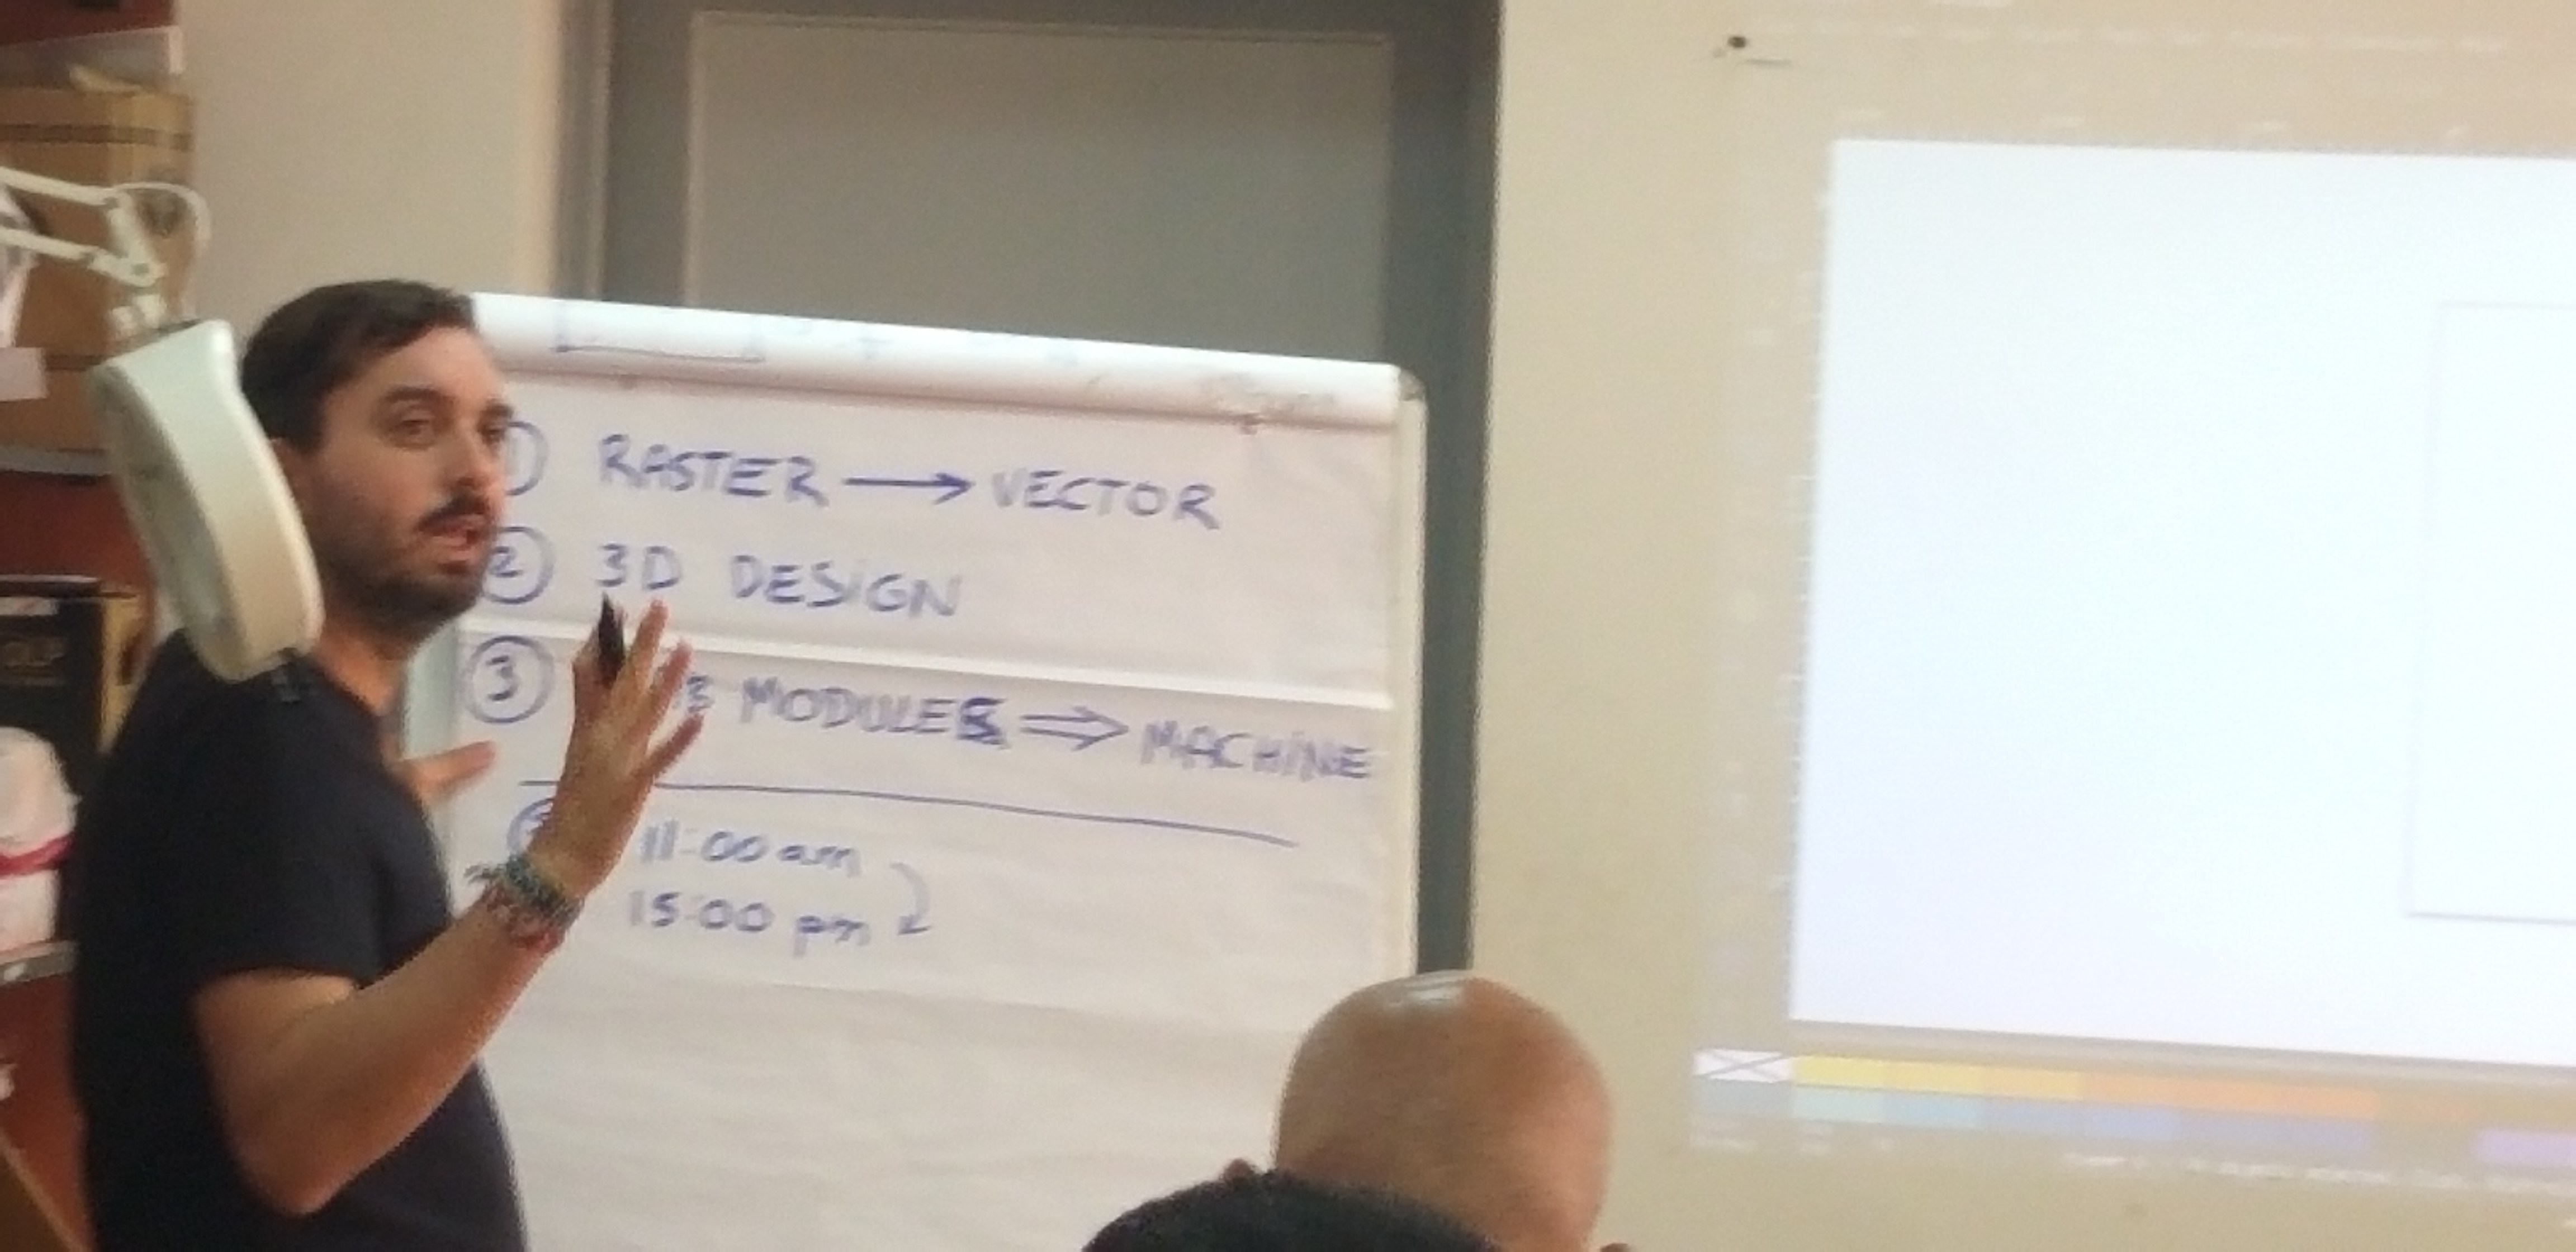 ① RASTER → VECTOR
② 3D DESIGN
③ MODULES ⇒ MACHINE
11:00 am
15:00 pm